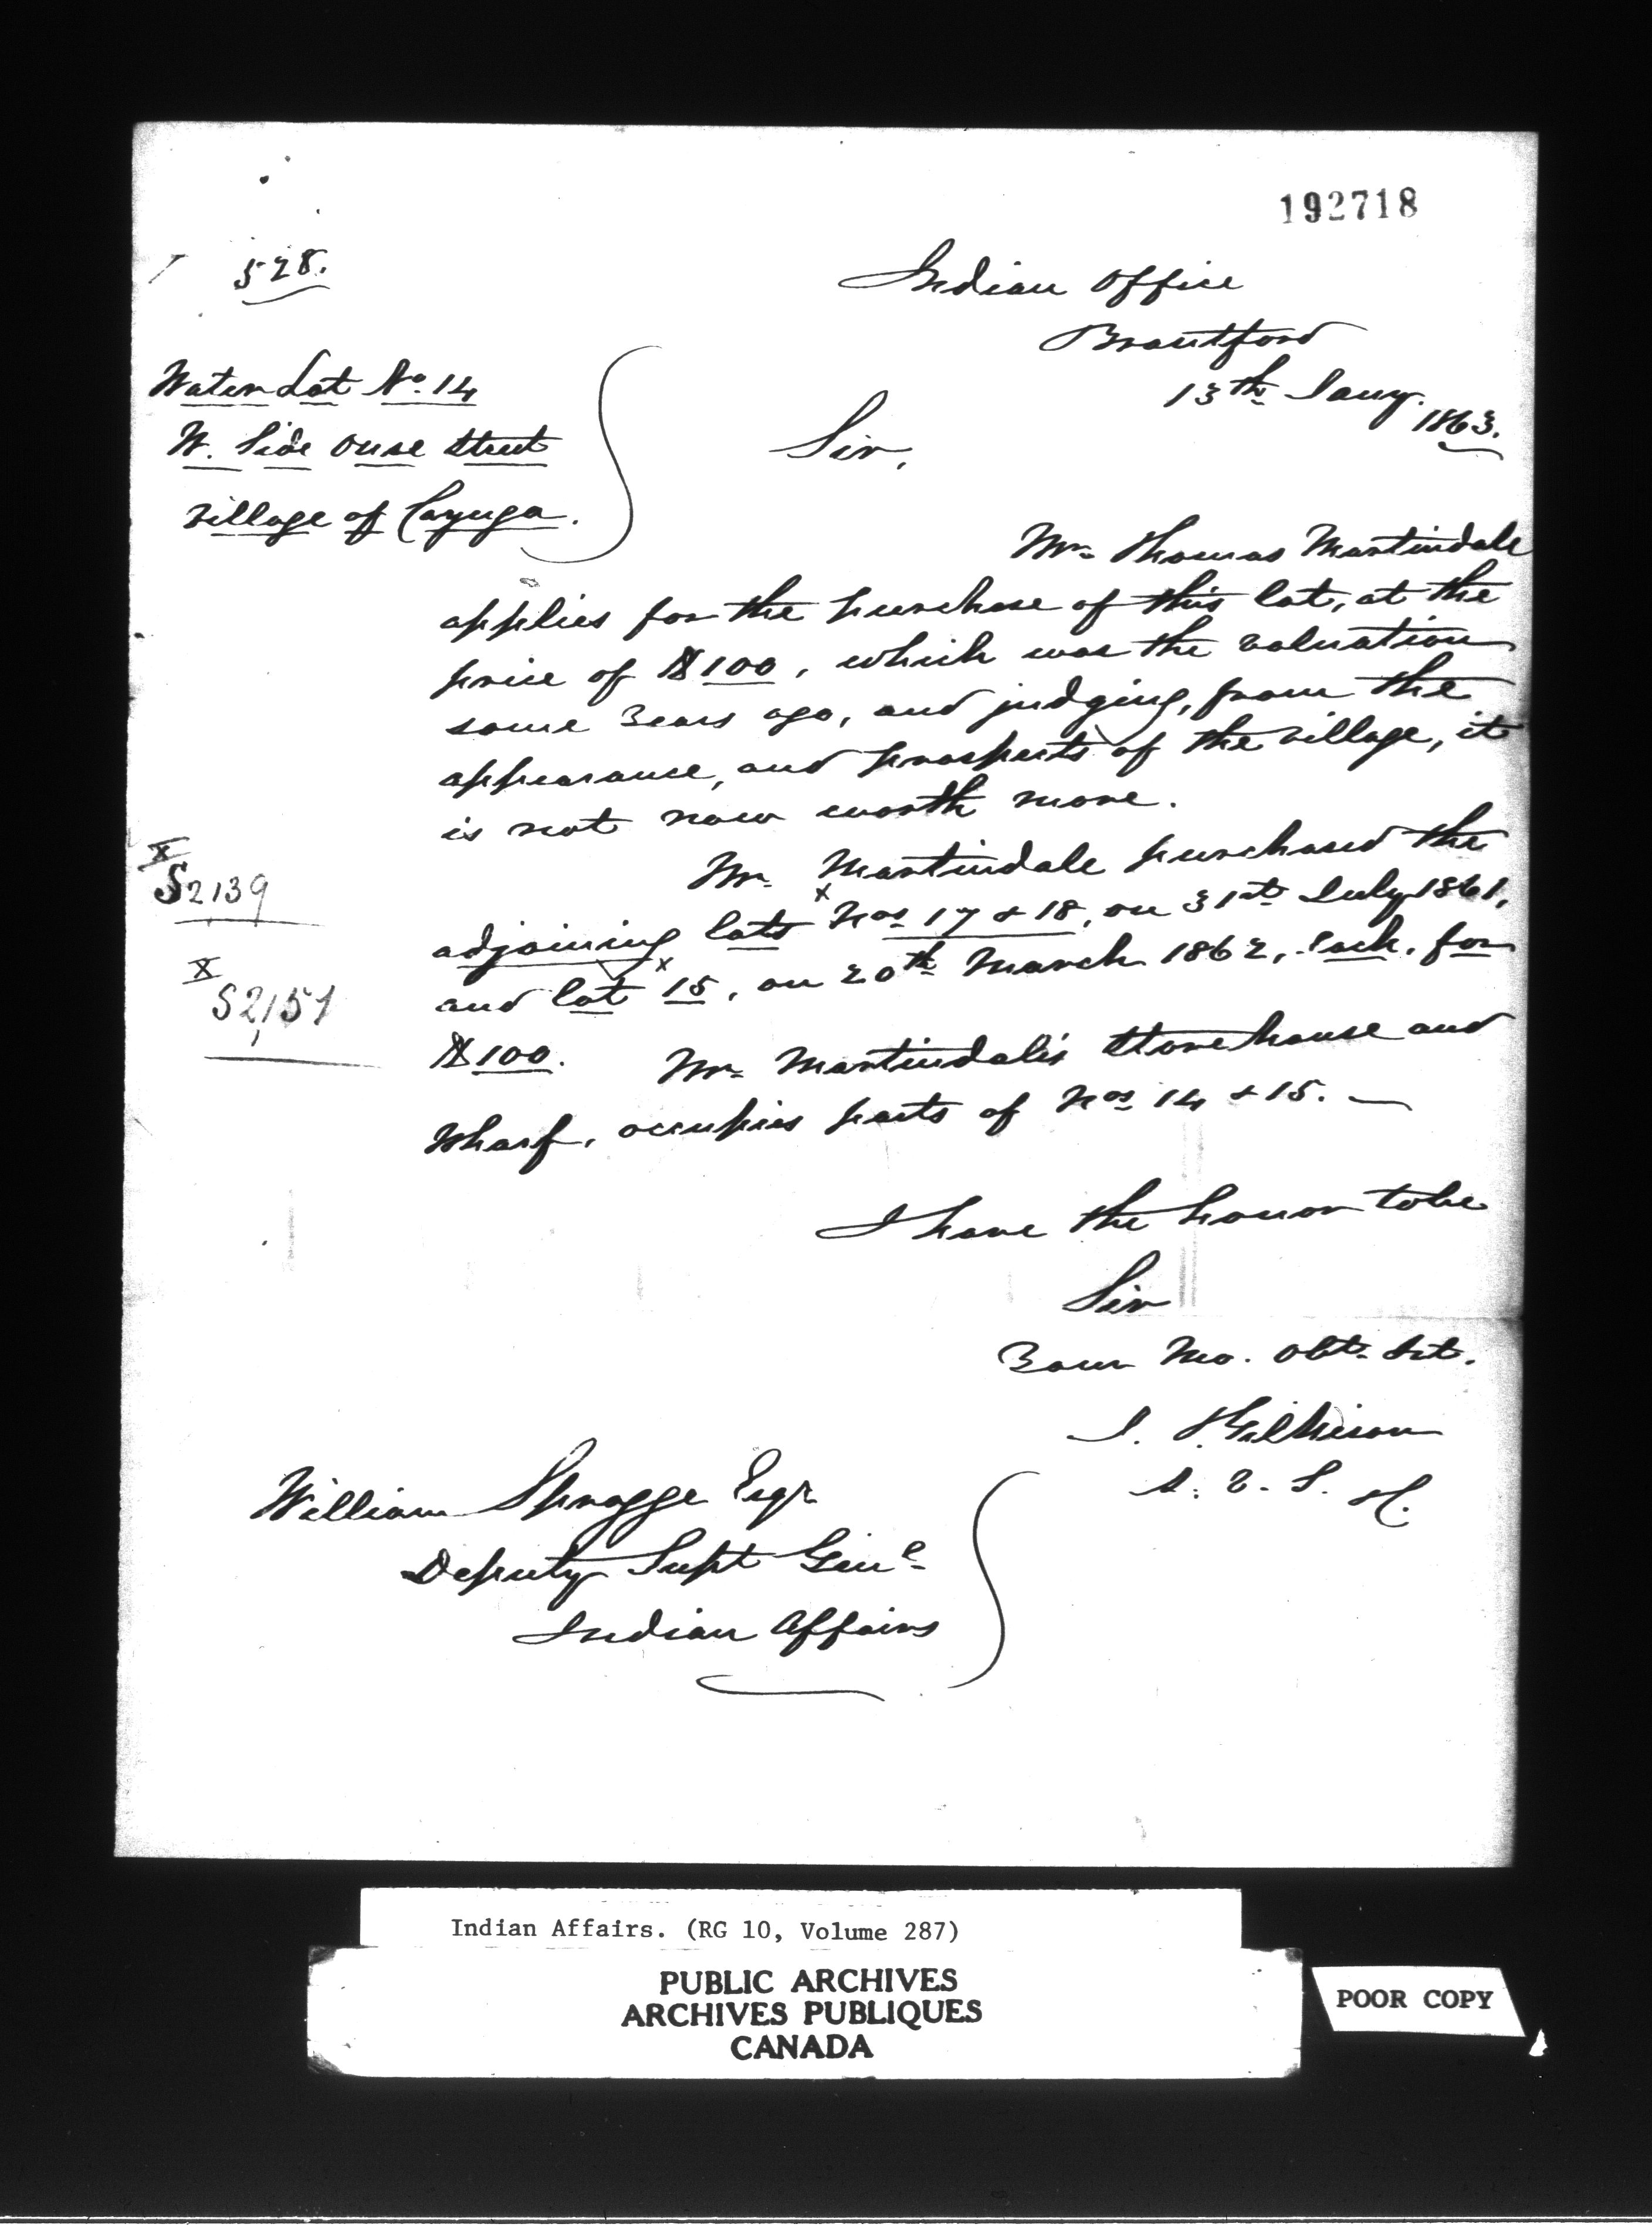 192718
528.
Indian Office
Brantford
13th Jany. 1863.
Water Lot No. 14
W. Side Ouse Street
Village of Cayuga.
Sir,
Mr. Thomas Martindale
applies for the purchase of this lot, at the
price of $100, which was the valuation
some years ago, and judging, from the
appearance, and prospects of the village, it
is not now worth more.
Mr. Martindale purchased the
adjoining lots x Nos 17 & 18, on 31st July 1861,
and lot x 15, on 20th March 1862, each, for
$100. Mr. Martindale's Storehouse and
Wharf, occupies parts of Nos 14 & 15. —
X
S2,139
X
S2,151
I have the honor to be
Sir
Your Mo. Obt. Svt.
J. Gilkison
William Spragge Esqr
Deputy Supt Genl
Indian Affairs
Indian Affairs. (RG 10, Volume 287)
PUBLIC ARCHIVES
ARCHIVES PUBLIQUES
CANADA
POOR COPY